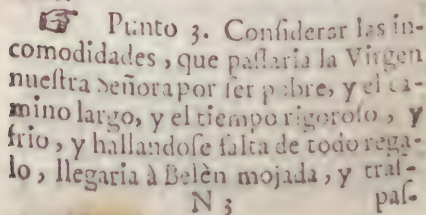 ☞ Punto 3. Conſiderar las in-
comodidades, que paſſaria la Virgen
nueſtra Señora por ſer pobre, y el ca-
mino largo, y el tiempo rigoroſo, y
frio, y hallandoſe falta de todo rega-
lo, llegaria à Belèn mojada, y traſ-
N 3 paſ-